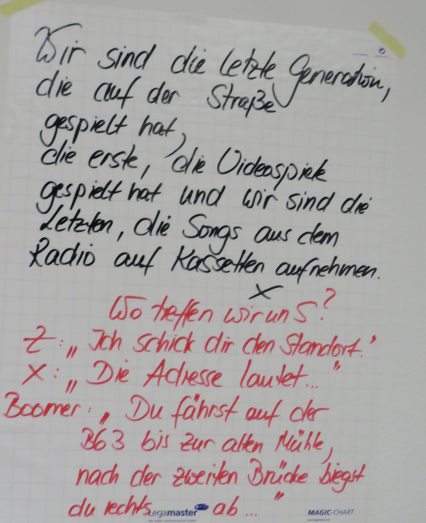 Wir sind die letzte Generation,
die auf der Straße
gespielt hat,
die erste, die Videospiele
gespielt hat und wir sind die
Letzten, die Songs aus dem
Radio auf Kassetten aufnehmen.
X
Wo treffen wir uns?
Z: „Ich schick dir den Standort."
X: „Die Adresse lautet..."
Boomer: „Du fährst auf der
B63 bis zur alten Mühle,
nach der zweiten Brücke biegst
du rechts ab..."
Legamaster MAGIC-CHART